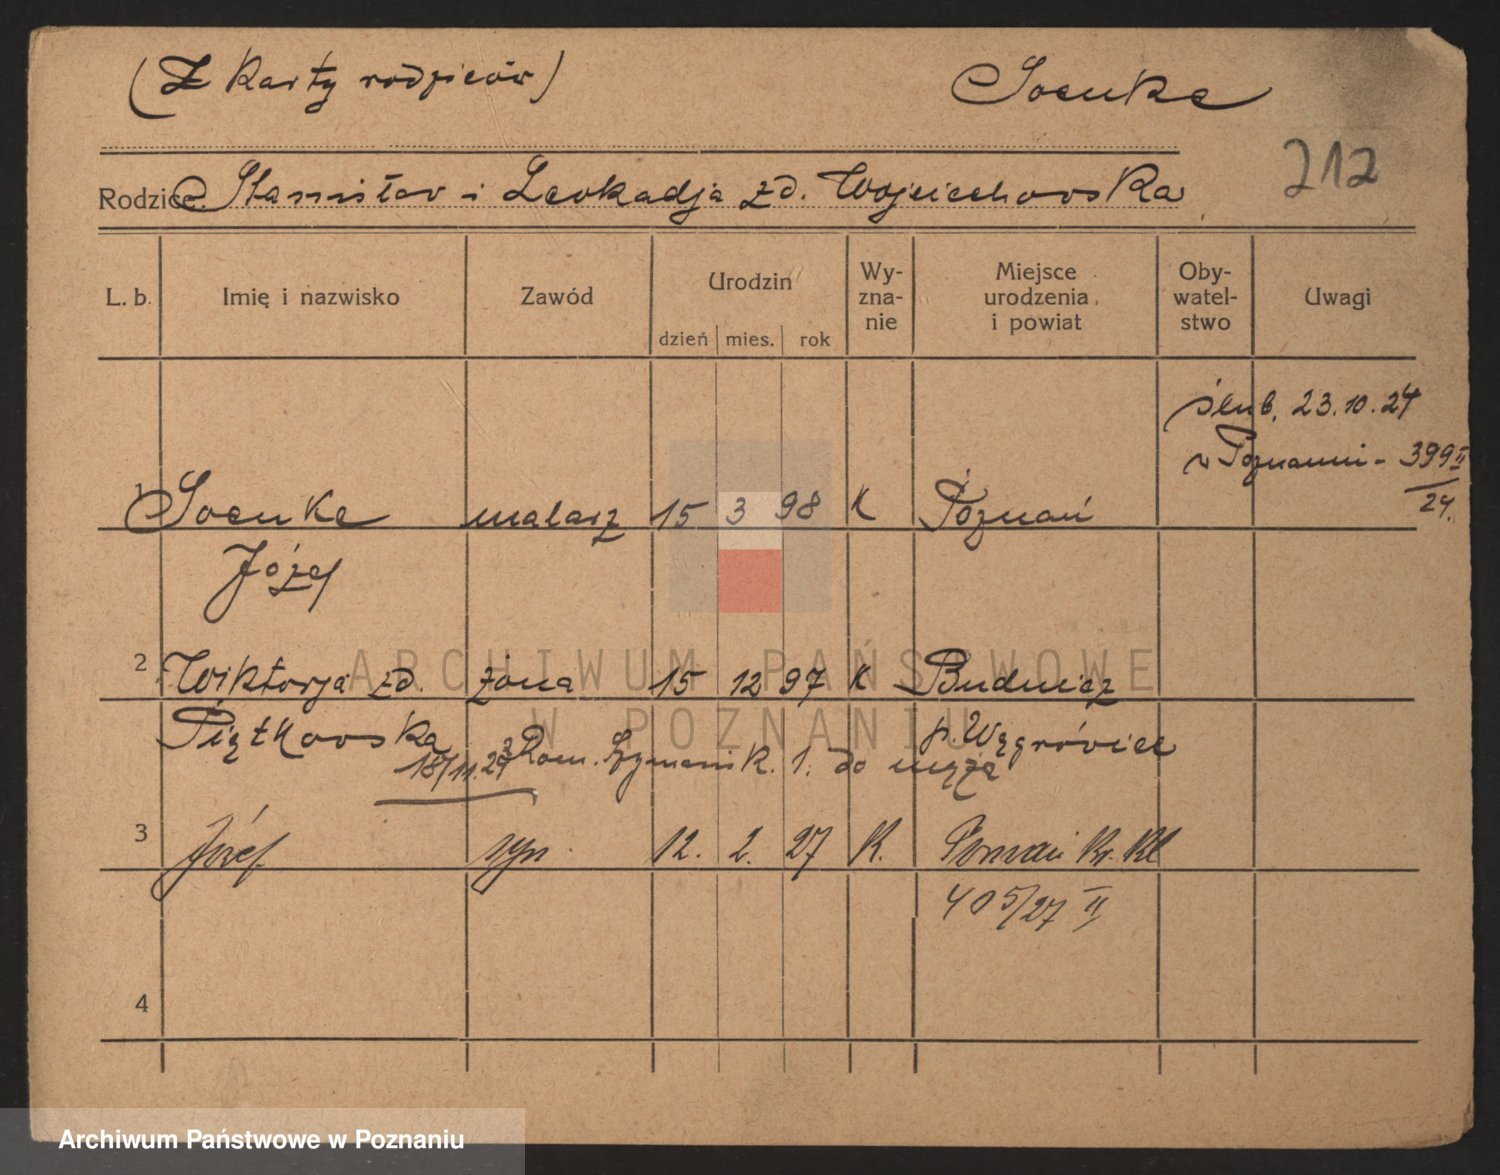 (Z karty rodziców)
Soenke
212
Rodzice: Stanisław i Leokadja zd. Wojciechowska
L. b.
Imię i nazwisko
Zawód
Urodzin
dzień mies. rok
Wy-
zna-
nie
Miejsce
urodzenia
i powiat
Oby-
watel-
stwo
Uwagi
ślub. 23.10.24
w Poznaniu - 399 II
24.
1 Soenke malarz 15 3 98 K Poznań
Józef
2 Wiktorja zd. żona 15 12 97 K
Piątkowska p. Wągrówiec
18/11.24 Rom. Szymańsk. 1. do męża
3 Józef syn 12. 2. 27 K. Poznań Kr. Kl
405/27 II
4
ARCHIWUM PAŃSTWOWE
W POZNANIU
Archiwum Państwowe w Poznaniu